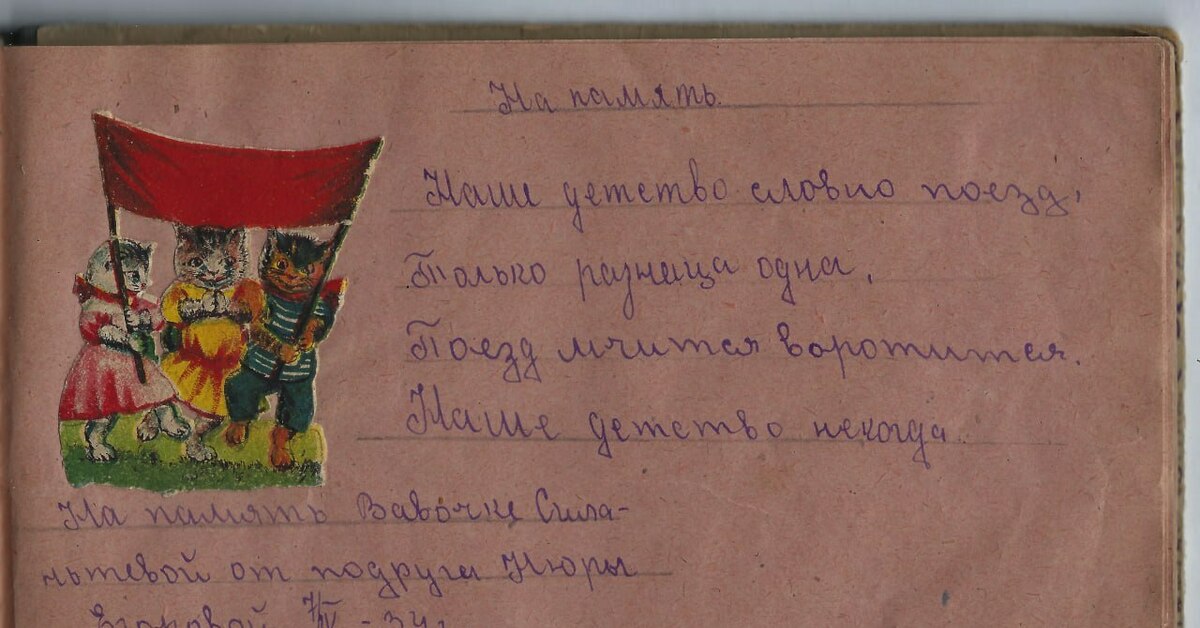 На память.
Наше детство словно поезд,
Только разница одна,
Поезд мчится воротится.
Наше детство некогда.
На память Вавочке Сила-
нтьевой от подруга Нюры
Егоровой 7/IV - 34 г